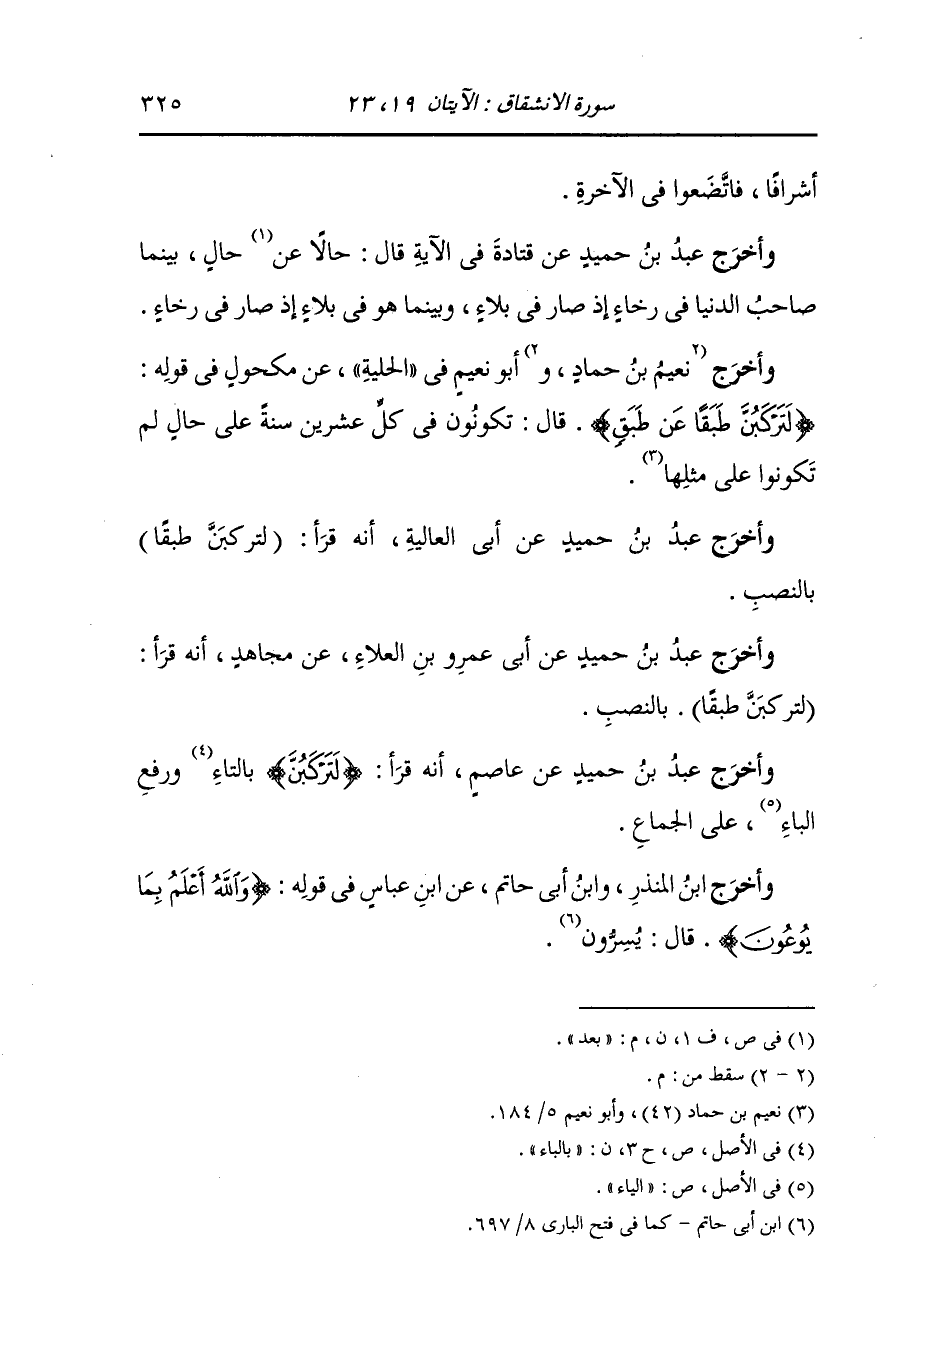 سورة الانشقاق : الآيتان ١٩، ٢٣ ٣٢٥
أشرافًا ، فاتَّضَعوا فى الآخرةِ .
وأخرَج عبدُ بنُ حميدٍ عن قتادةَ فى الآيةِ قال : حالًا عن(١) حالٍ ، بينما
صاحبُ الدنيا فى رخاءٍ إذ صار فى بلاءٍ ، وبينما هو فى بلاءٍ إذ صار فى رخاءٍ .
وأخرَج (٢نعيمُ بنُ حمادٍ ، و٢) أبو نعيمٍ فى «الحليةِ» ، عن مكحولٍ فى قولِه :
﴿لَتَرْكَبُنَّ طَبَقًا عَن طَبَقٍ﴾ . قال : تكونُون فى كلِّ عشرين سنةً على حالٍ لم
تَكونوا على مثلِها(٣) .
وأخرَج عبدُ بنُ حميدٍ عن أبى العاليةِ ، أنه قرَأ : (لتركبَنَّ طبقًا)
بالنصبِ .
وأخرَج عبدُ بنُ حميدٍ عن أبى عمرِو بنِ العلاءِ ، عن مجاهدٍ ، أنه قرَأ :
(لتركبَنَّ طبقًا) . بالنصبِ .
وأخرَج عبدُ بنُ حميدٍ عن عاصمٍ ، أنه قرَأ : ﴿لَتَرْكَبُنَّ﴾ بالتاءِ(٤) ورفعِ
الباءِ(٥) ، على الجماعِ .
وأخرَج ابنُ المنذرِ ، وابنُ أبى حاتمٍ ، عن ابنِ عباسٍ فى قولِه : ﴿وَٱللَّهُ أَعْلَمُ بِمَا
يُوعُونَ﴾ . قال : يُسِرُّون(٦) .
(١) فى ص ، ف ١، ن ، م : « بعد» .
(٢ - ٢) سقط من : م .
(٣) نعيم بن حماد (٤٢) ، وأبو نعيم ٥/ ١٨٤.
(٤) فى الأصل ، ص ، ح ٣، ن : « بالباء» .
(٥) فى الأصل ، ص : « الياء» .
(٦) ابن أبى حاتم - كما فى فتح البارى ٨/ ٦٩٧.